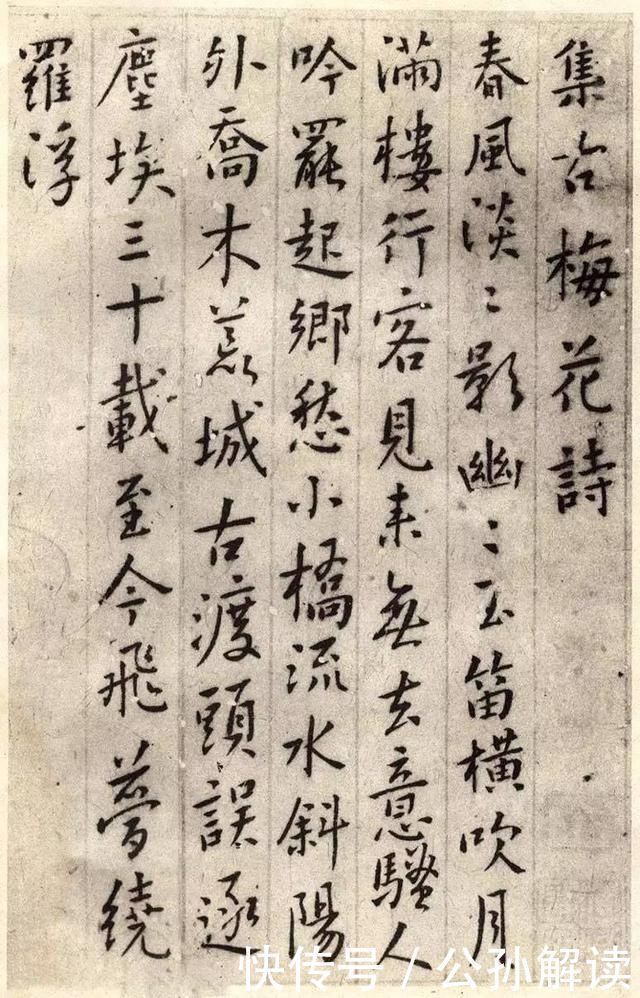 集古梅花詩
春風淡〻影幽〻玉笛橫吹月
滿樓行客見來無去意騷人
吟罷起鄉愁小橋流水斜陽
外喬木荒城古渡頭誤逐
塵埃三十載至今飛夢繞
羅浮
快传号/公孙解读